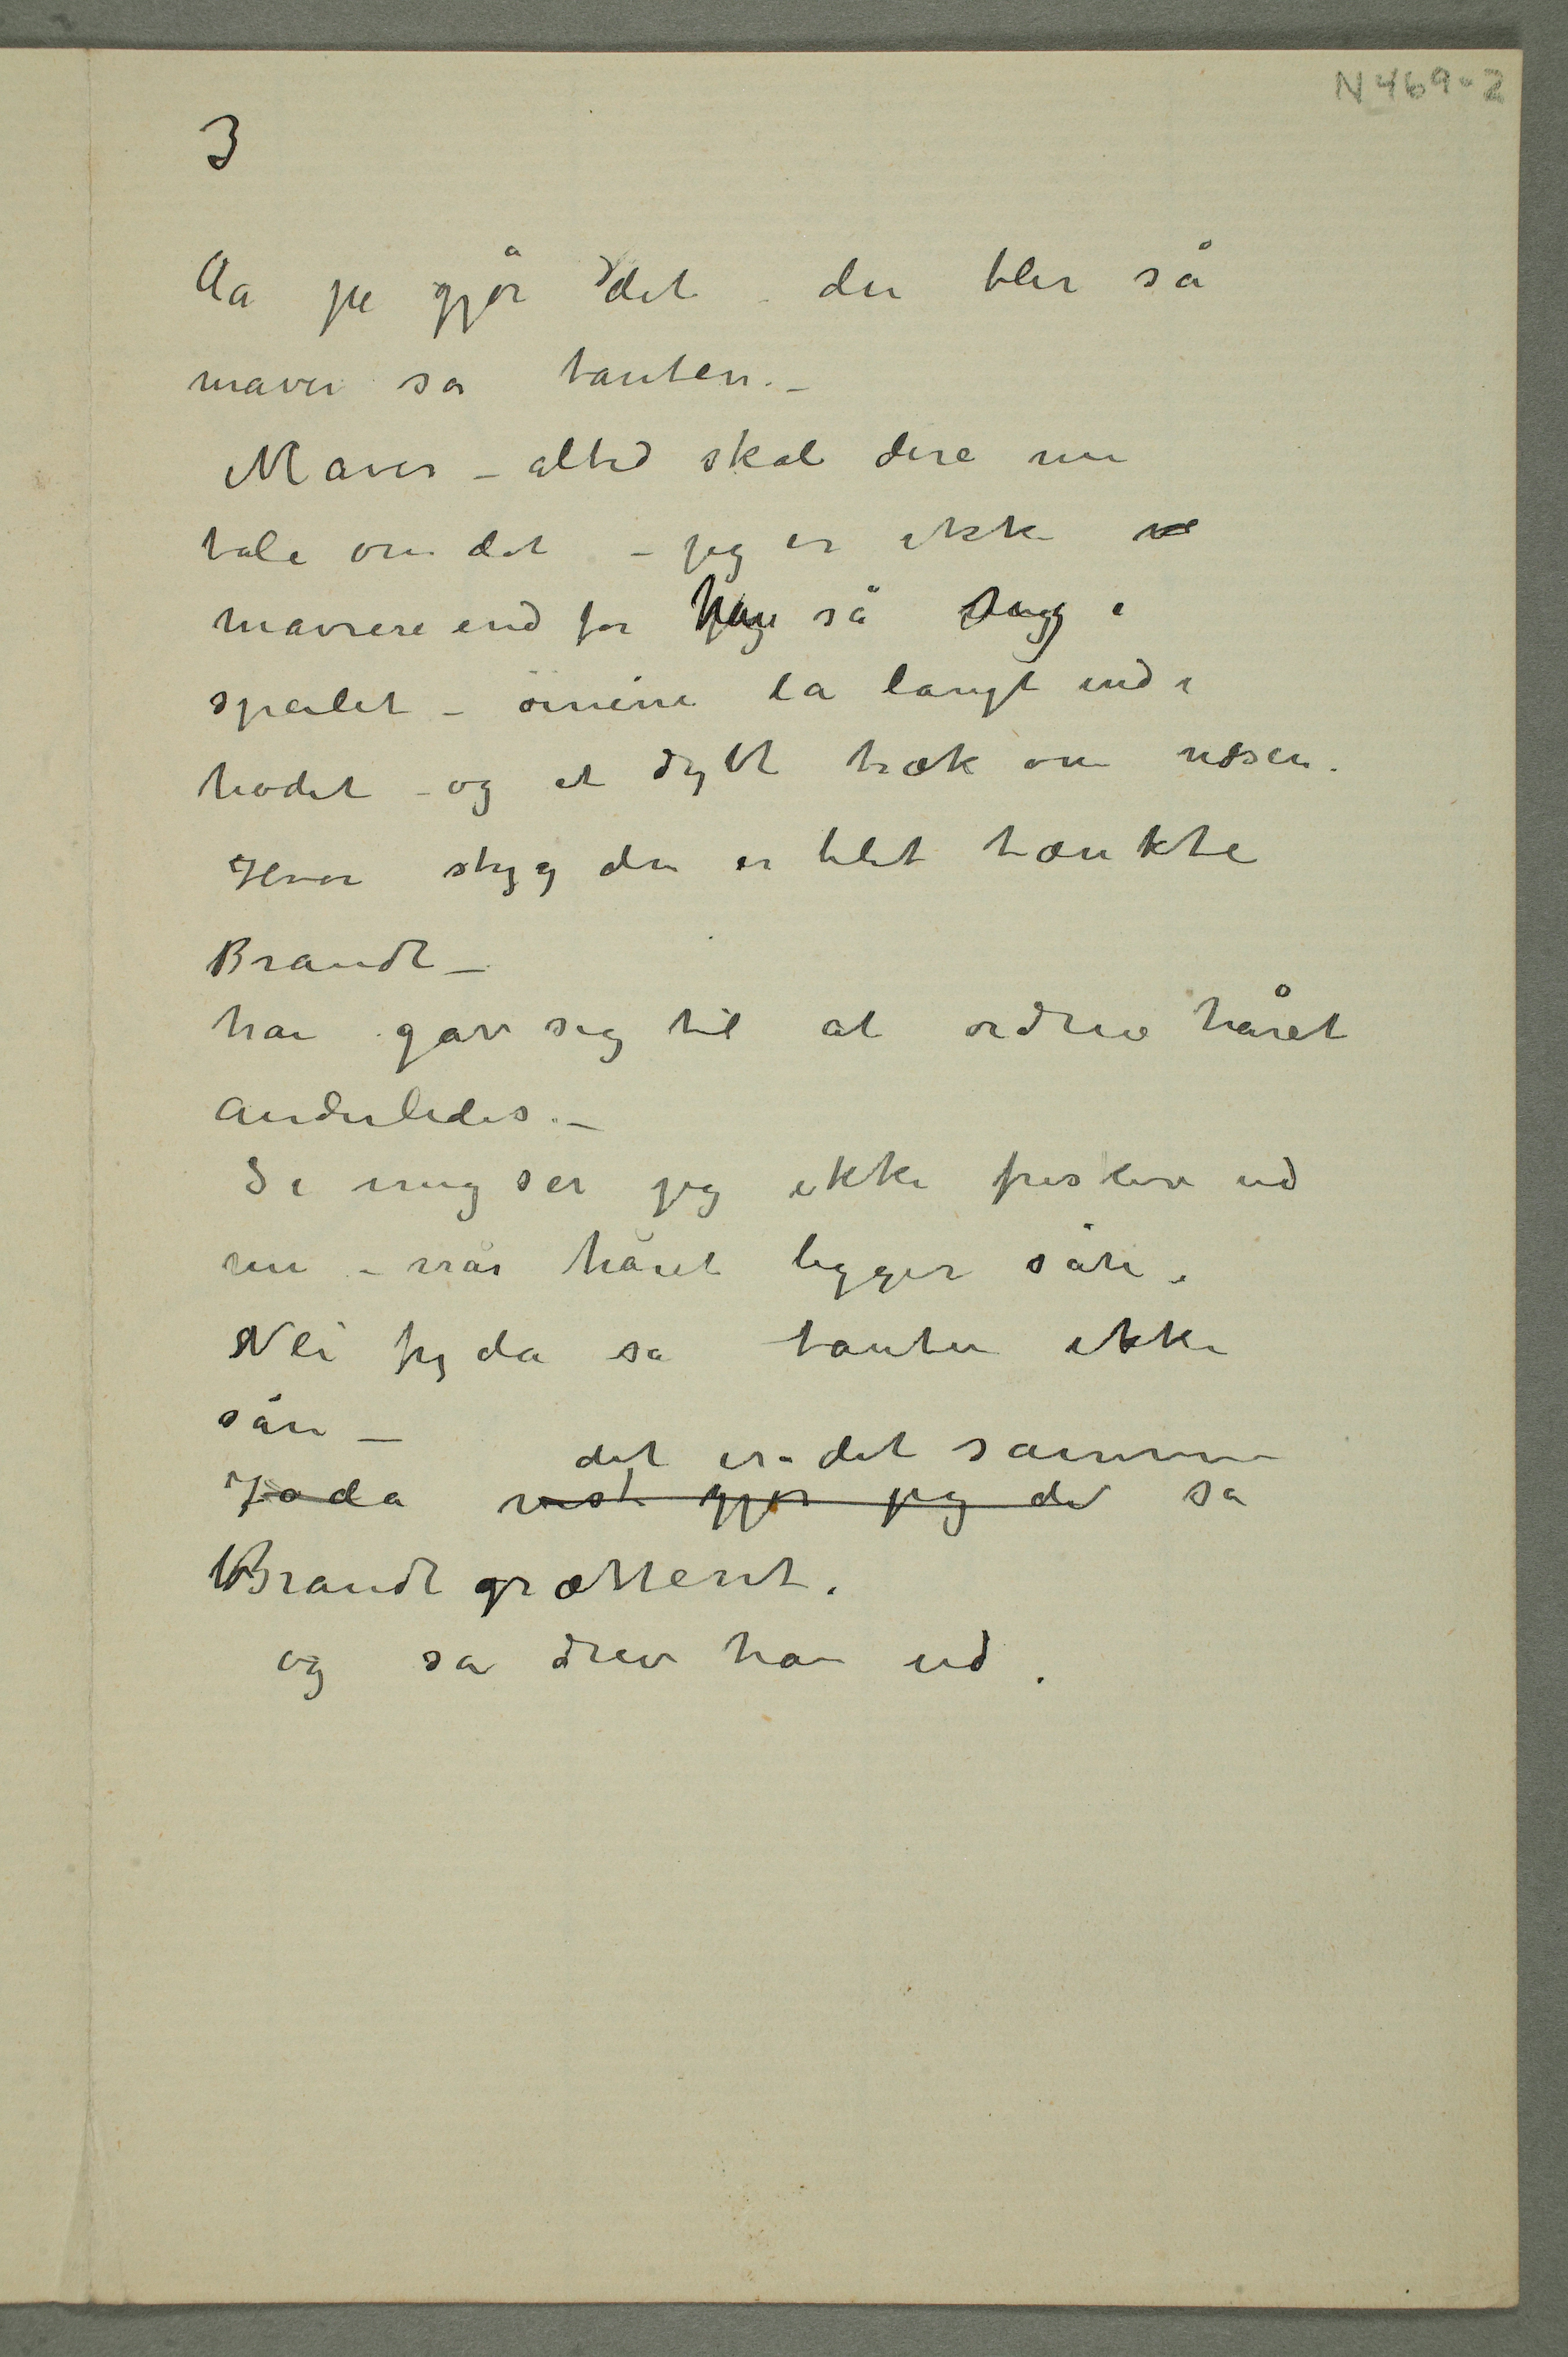 N 469-2
3
Aa jo gjør det – du blir så
maver sa tanten. –
Maver – altid skal dere nu
tale om det – jeg er ikke
mavrere end før Han så sig i
speilet – øinene lå langt ind i
hodet – og et dybt træk om næsen.
Hvor styg du er blet tænkte
Brandt –
han gav sig til at ordne håret
anderledes. –
Si mig ser jeg ikke friskere ud
nu – når håret ligger sån.
Nei fy da sa tanten ikke
sån –
det er det samme
Joda vist gjør jeg det sa
Brandt grættent.
og så drev han ud.